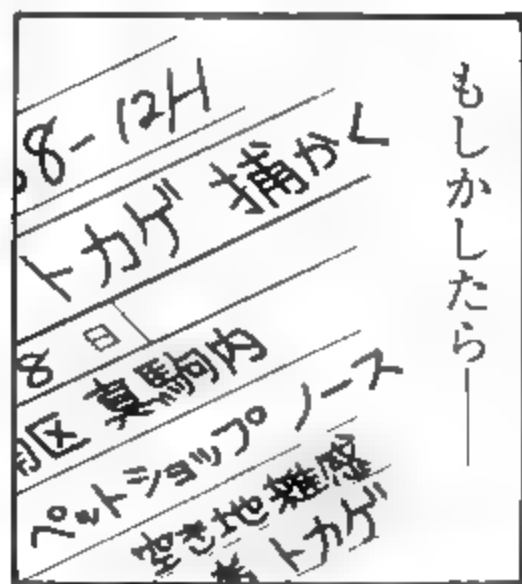 もしかしたら──
8-12H
トカゲ 捕かく
8 日
区 真駒内
ペットショップ ノース
空き地雑感
トカゲ